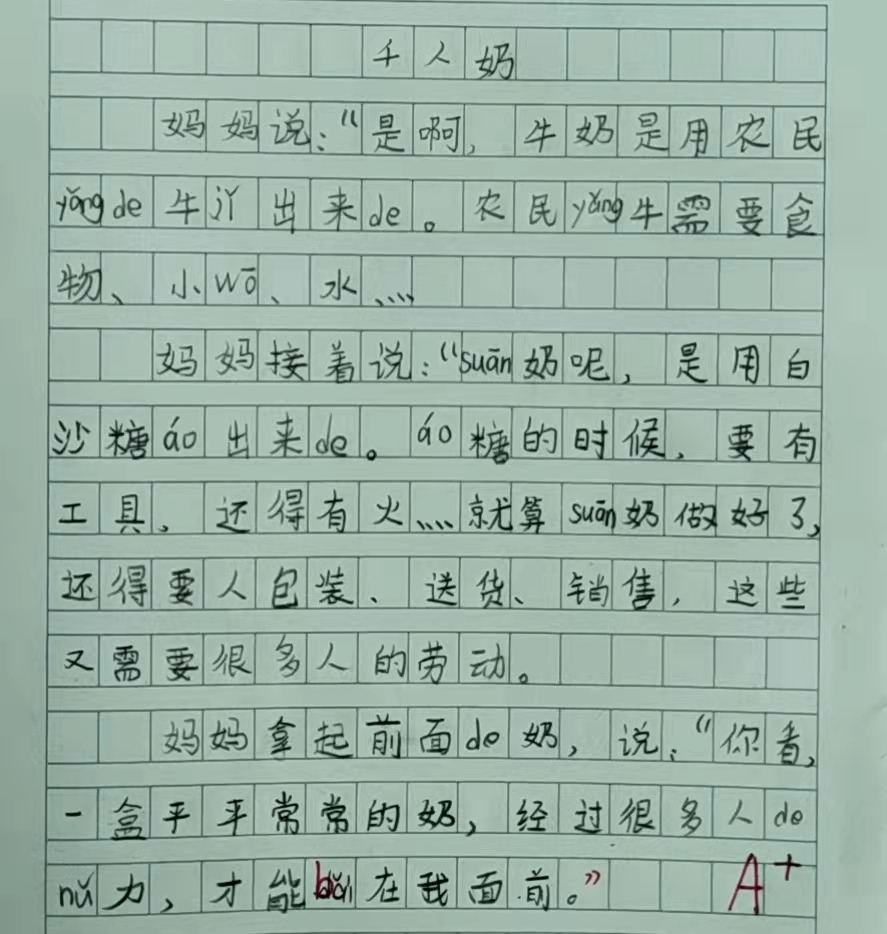 千人奶
妈妈说：“是啊，牛奶是用农民
yǎng de 牛 jǐ 出来 de。农民 yǎng 牛需要食
物、小 wō、水……
妈妈接着说：“suān 奶呢，是用白
沙糖 áo 出来 de。áo 糖的时候，要有
工具，还得有火……就算 suān 奶做好了，
还得要人包装、送货、销售，这些
又需要很多人的劳动。
妈妈拿起前面 de 奶，说：“你看，
一盒平平常常的奶，经过很多人 de
nǔ 力，才能 bǎi 在我面前。”
A+